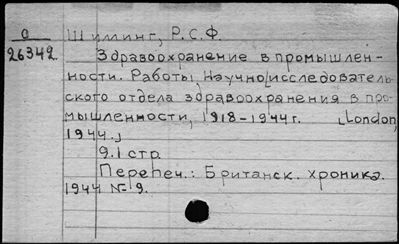 О
26342
Шиллинг, Р.С.Ф.
Здравоохранение в промышлен-
ности. Работы Научно исследователь-
ского отдела здравоохранения в про-
мышленности, 1918-1944 г. [London,
1944.]
9.1 стр.
Перепеч.: Британск. хроника.
1944 № 9.